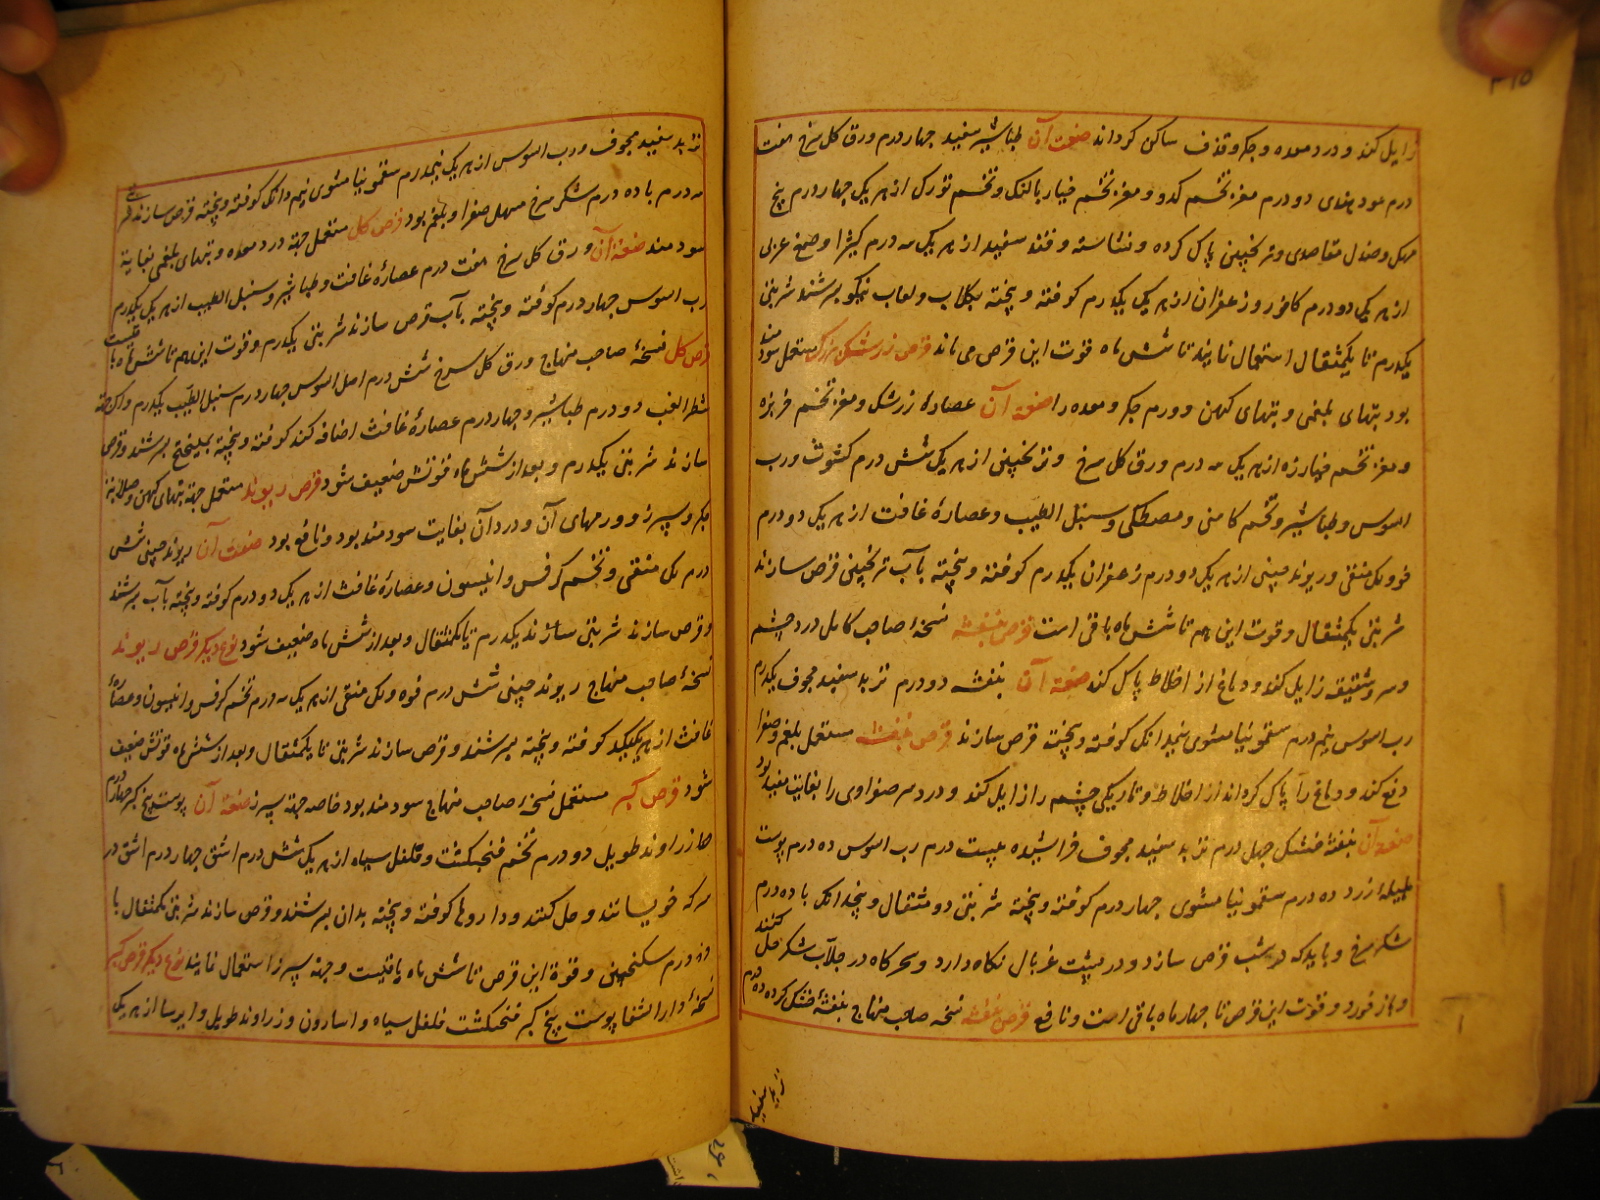 ۳۱۵
زایل کند و درد معده و جکر و قذف ساکن کرداند صنعت آن طباشیر سفید چهار درم ورق کل سرخ هفت
درم عود هندی دو درم مغز تخم کدو و مغز تخم خیار بالنک و تخم تورک از هر یک چهار درم پنج
مهک و صندل مقاصری و ترنجبین پاک کرده و نشاسته و قند سفید از هر یک سه درم کثیرا و صمغ عربی
از هر یک دو درم کافور و زعفران از هر یک یکدرم کوفته و پخته بکلاب و لعاب بزرقطونا بسرشند شربتی
یکدرم تا یکمثقال استعمال نمایند تا شش ماه قوت این قرص می ماند قرص زرشک بزرک مستعمل سودمند
بود تبهای بلغمی و تبهای کهن و ورم جکر و معده را صنعت آن عصارهٔ زرشک و مغز تخم خربزه
و مغز تخم خیارزه از هر یک سه درم ورق کل سرخ و ترنجبین از هر یک شش درم کشوث و رب
السوس و طباشیر و تخم کاسنی و مصطکی و سنبل الطیب و عصارهٔ غافت از هر یک دو درم
فوه و لک منقی و ریوند چینی از هر یک دو درم زعفران یکدرم کوفته و پخته بآب ترنجبین قرص سازند
شربتی یکمثقال و قوت این هم تا شش ماه باقی است قرص بنفشه نسخهٔ صاحب کامل درد چشم
و سر و شقیقه زایل کند و دماغ از اخلاط پاک کند صنعت آن بنفشه دو درم تربد سفید مجوف یکدرم
رب السوس نیم درم سقمونیا مشوی نیمدانک کوفته و پخته قرص سازند قرص بنفشه مستعمل بلغم و صفرا
دفع کند و دماغ را پاک کرداند از اخلاط و تاریکی چشم را زایل کند و درد سر صفراوی را بغایت مفید بود
صنعت آن بنفشهٔ خشک چهل درم تربد سفید مجوف خراشیده بیست درم رب السوس ده درم پوست
هلیلهٔ زرد ده درم سقمونیا مشوی چهار درم کوفته و پخته شربتی دو مثقال و پنجدانک با ده درم
شکر سرخ و باید که در شب قرص سازد و در پشت غربال نکاه دارد و سحرکاه در جلاب شکر حل کنند
و باز خورد و قوت این قرص تا چهار ماه باقی است و نافع قرص بنفشه نسخه صاحب منهاج بنفشهٔ خشک کرده ده درم
تربد سفید
تربد سفید مجوف و رب السوس از هر یک نیمدرم سقمونیا مشوی نیم دانک کوفته و پخته قرص سازند
سه درم با ده درم شکر سرخ مسهل صفرا و بلغم بود قرص کل مستعمل جهة درد معده و تبهای بلغمی بغایة
سودمند صنعة آن ورق کل سرخ هفت درم عصارهٔ غافت و طباشیر و سنبل الطیب از هر یک یکدرم
رب السوس چهار درم کوفته و پخته بآب قرص سازند شربتی یکدرم و قوت این هم تا شش ماه باقیست
قرص کل نسخهٔ صاحب منهاج ورق کل سرخ شش درم اصل السوس چهار درم سنبل الطیب یکدرم و اکر جهة
شطر الغب دو درم طباشیر و چهار درم عصارهٔ غافث اضافه کنند کوفته و پخته بمیفختج بسرشند و قرص
سازند شربتی یکدرم و بعد از شش ماه قوتش ضعیف شود قرص ریوند مستعمل جهة تبهای کهن و صلابة
جکر و سپرز و ورمهای آن و درد آن بغایت سودمند بود و نافع بود صنعت آن ریوند چینی شش
درم لک منقی و تخم کرفس و انیسون و عصارهٔ غافث از هر یک دو درم کوفته و پخته بآب بسرشند
و قرص سازند شربتی سازند یکدرم تا یکمثقال و بعد از شش ماه ضعیف شود نوع دیکر قرص ریوند
نسخهٔ صاحب منهاج ریوند چینی شش درم فوه و لک منقی از هر یک سه درم تخم کرفس و انیسون و عصارهٔ
غافث از هر یک یکدرم کوفته و پخته بسرشند و قرص سازند شربتی تا یکمثقال و بعد از شش ماه قوتش ضعیف
شود قرص کبر مستعمل نسخهٔ صاحب منهاج سودمند بود خاصه جهة سپرز صنعة آن پوست بیخ کبر چهار درم
زراوند طویل دو درم تخم فنجنکشت و فلفل سیاه از هر یک شش درم اشق چهار درم اشق در
سرکه خویسانند و حل کنند و داروها کوفته و پخته بدان بسرشند و قرص سازند شربتی یکمثقال با
ده درم سکنجبین و قوة این قرص تا شش ماه باقیست و جهة سپرز استعمال نمایند نوع دیکر قرص کبر
نسخهٔ دار الشفا پوست بیخ کبر فنجنکشت فلفل سیاه و اسارون و زراوند طویل و ایرسا از هر یک